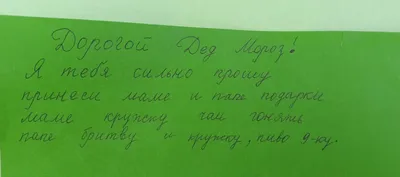 Дорогой Дед Мороз!
Я тебя сильно прошу
принеси маме и папе подарки
маме кружку чай гонять
папе бритву и кружку, пиво 9-ку.